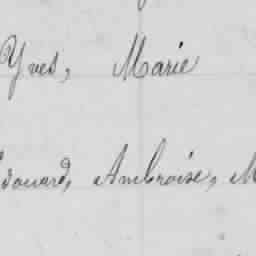 Yves, Marie
Edouard, Ambroise, M